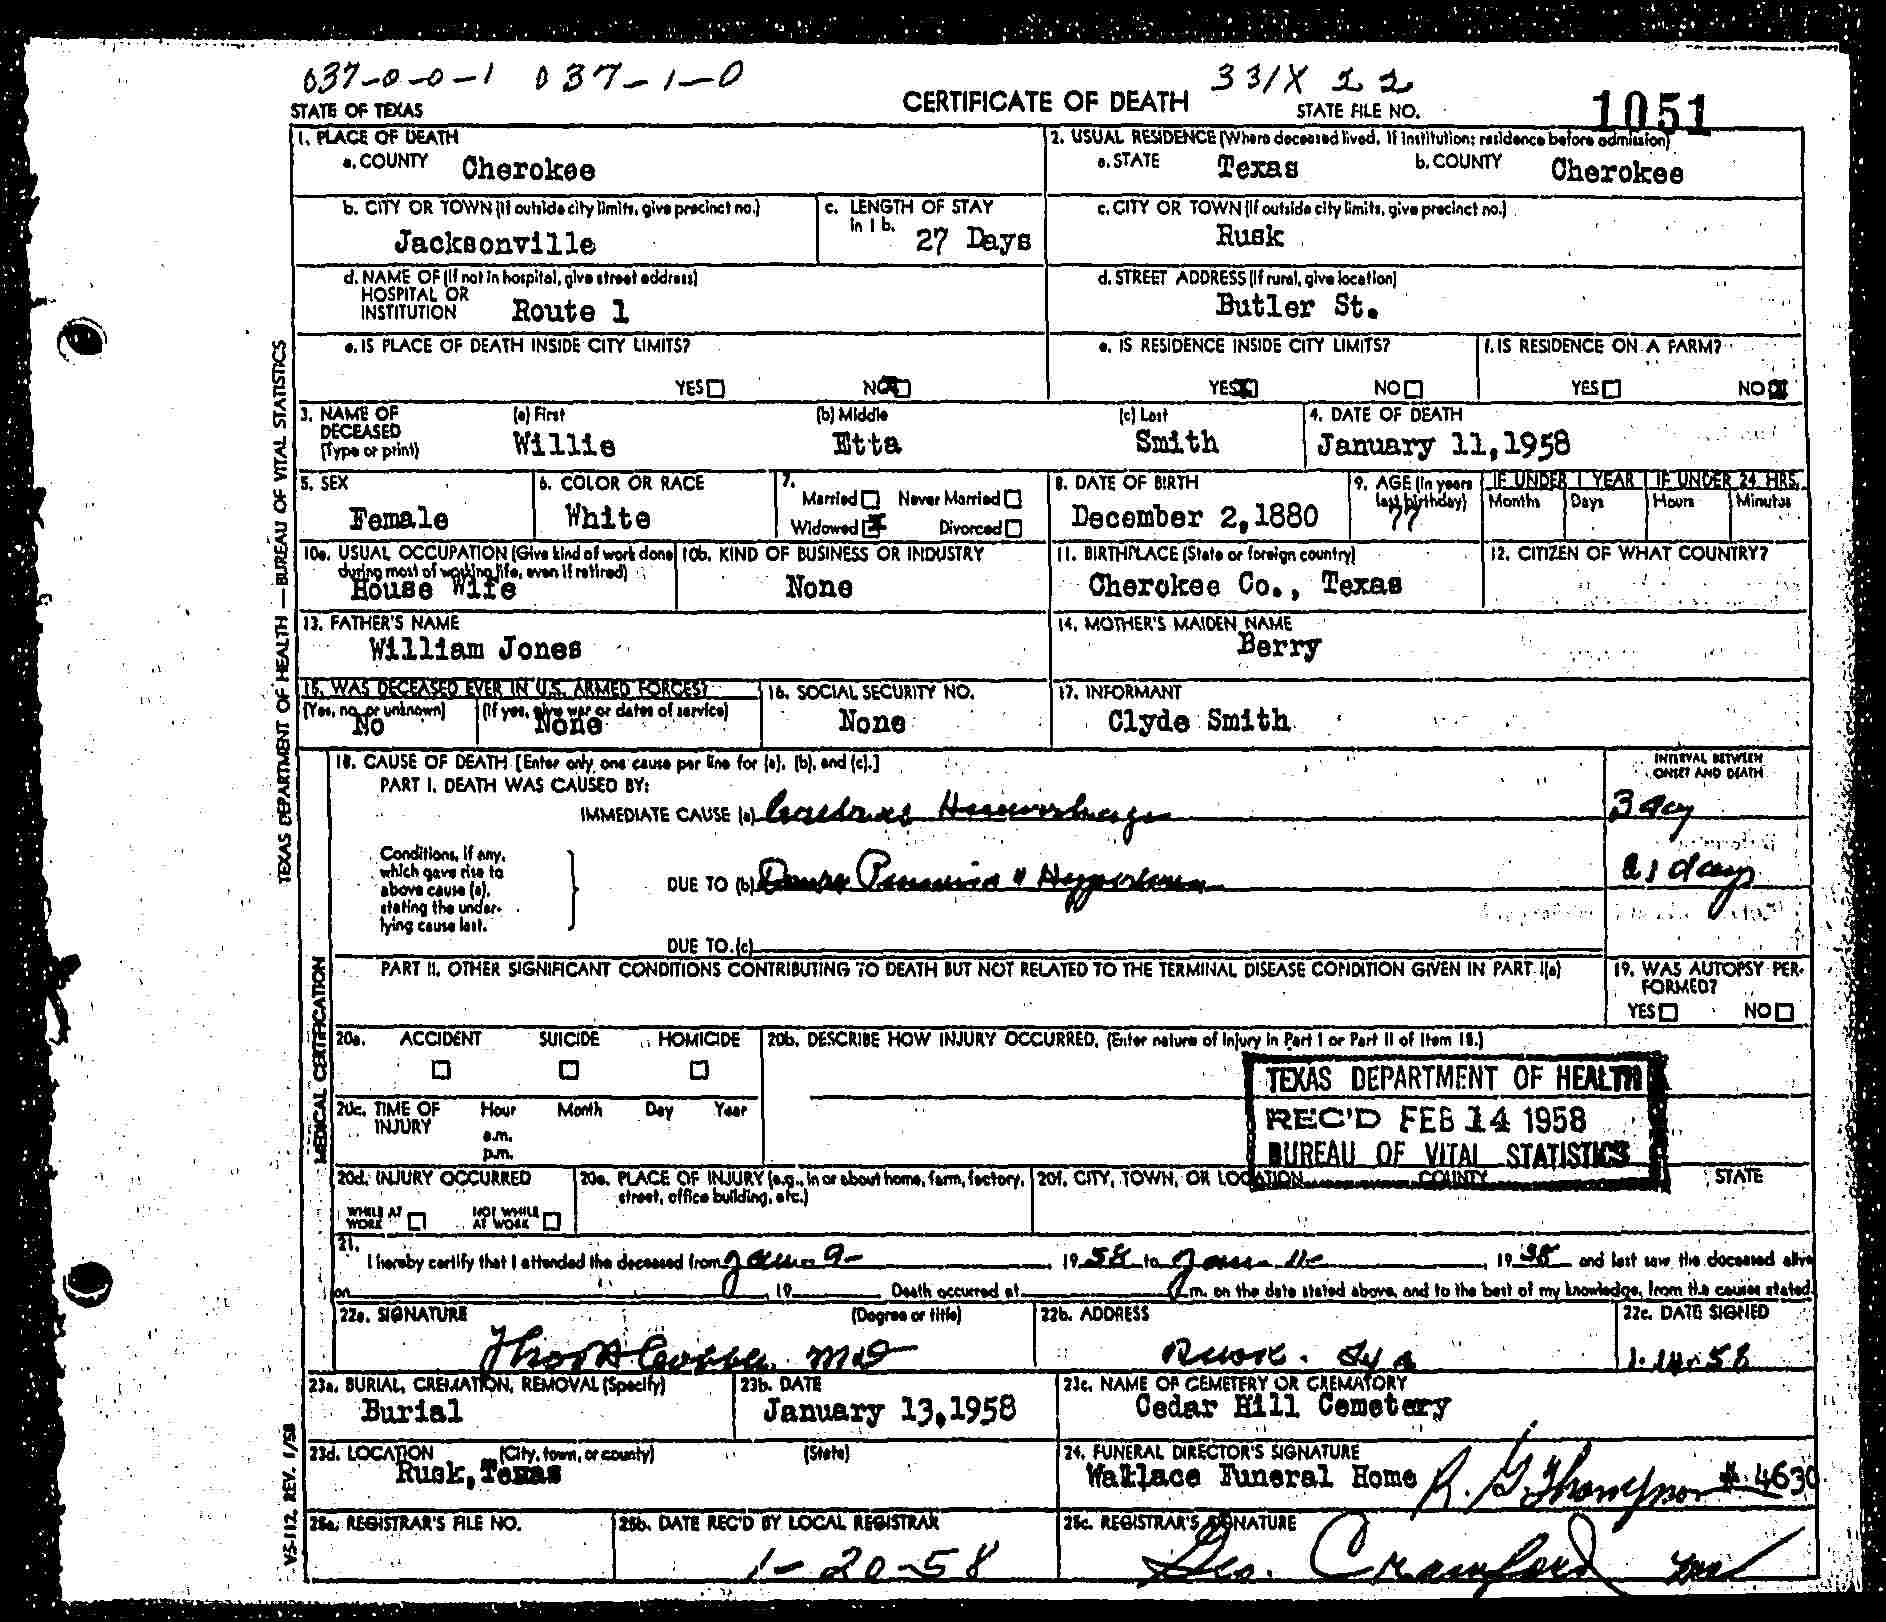 037-0-0-1 037-1-0 331X 22
STATE OF TEXAS CERTIFICATE OF DEATH STATE FILE NO. 1051
1. PLACE OF DEATH
a. COUNTY Cherokee
2. USUAL RESIDENCE (Where deceased lived. If institution: residence before admission)
a. STATE Texas b. COUNTY Cherokee
b. CITY OR TOWN (If outside city limits, give precinct no.)
Jacksonville
c. LENGTH OF STAY
in 1 b. 27 Days
c. CITY OR TOWN (If outside city limits, give precinct no.)
Rusk
d. NAME OF (If not in hospital, give street address)
HOSPITAL OR
INSTITUTION Route 1
d. STREET ADDRESS (If rural, give location)
Butler St.
e. IS PLACE OF DEATH INSIDE CITY LIMITS?
YES NO
e. IS RESIDENCE INSIDE CITY LIMITS?
YES NO
f. IS RESIDENCE ON A FARM?
YES NO
3. NAME OF
DECEASED
(Type or print)
(a) First (b) Middle (c) Last
Willie Etta Smith
4. DATE OF DEATH
January 11, 1958
5. SEX
Female
6. COLOR OR RACE
White
7.
Married Never Married
Widowed Divorced
8. DATE OF BIRTH
December 2, 1880
9. AGE (In years
last birthday)
77
IF UNDER 1 YEAR IF UNDER 24 HRS.
Months Days Hours Minutes
10a. USUAL OCCUPATION (Give kind of work done
during most of working life, even if retired)
House Wife
10b. KIND OF BUSINESS OR INDUSTRY
None
11. BIRTHPLACE (State or foreign country)
Cherokee Co., Texas
12. CITIZEN OF WHAT COUNTRY?
13. FATHER'S NAME
William Jones
14. MOTHER'S MAIDEN NAME
Berry
15. WAS DECEASED EVER IN U.S. ARMED FORCES?
(Yes, no, or unknown) (If yes, give war or dates of service)
No None
16. SOCIAL SECURITY NO.
None
17. INFORMANT
Clyde Smith
18. CAUSE OF DEATH [Enter only one cause per line for (a), (b), and (c).]
PART I. DEATH WAS CAUSED BY:
INTERVAL BETWEEN
ONSET AND DEATH
IMMEDIATE CAUSE (a) Cerebral Hemorrhage 3 day
Conditions, if any,
which gave rise to
above cause (a),
stating the under-
lying cause last.
DUE TO (b) Hypertension 21 days
DUE TO (c)
PART II. OTHER SIGNIFICANT CONDITIONS CONTRIBUTING TO DEATH BUT NOT RELATED TO THE TERMINAL DISEASE CONDITION GIVEN IN PART I(a)
19. WAS AUTOPSY PER-
FORMED?
YES NO
20a. ACCIDENT SUICIDE HOMICIDE
20b. DESCRIBE HOW INJURY OCCURRED. (Enter nature of injury in Part I or Part II of item 18.)
TEXAS DEPARTMENT OF HEALTH
REC'D FEB 14 1958
BUREAU OF VITAL STATISTICS
20c. TIME OF
INJURY
Hour Month Day Year
a.m.
p.m.
20d. INJURY OCCURRED
WHILE AT
WORK
NOT WHILE
AT WORK
20e. PLACE OF INJURY (e.g., in or about home, farm, factory,
street, office building, etc.)
20f. CITY, TOWN, OR LOCATION COUNTY STATE
21.
I hereby certify that I attended the deceased from Jan. 9 1958 to Jan 11 1958 and last saw the deceased alive
on , 19 Death occurred at m. on the date stated above, and to the best of my knowledge, from the causes stated.
22a. SIGNATURE (Degree or title)
Thos H Cobble MD
22b. ADDRESS
Rusk. Tex
22c. DATE SIGNED
1-14-58
23a. BURIAL, CREMATION, REMOVAL (Specify)
Burial
23b. DATE
January 13, 1958
23c. NAME OF CEMETERY OR CREMATORY
Cedar Hill Cemetery
23d. LOCATION (City, town, or county) (State)
Rusk, Texas
24. FUNERAL DIRECTOR'S SIGNATURE
Wallace Funeral Home R. G. Thompson # 4630
25a. REGISTRAR'S FILE NO.
25b. DATE REC'D BY LOCAL REGISTRAR
1-20-58
25c. REGISTRAR'S SIGNATURE
Geo. Crawford
TEXAS DEPARTMENT OF HEALTH — BUREAU OF VITAL STATISTICS
MEDICAL CERTIFICATION
VS-112, REV. 1/58